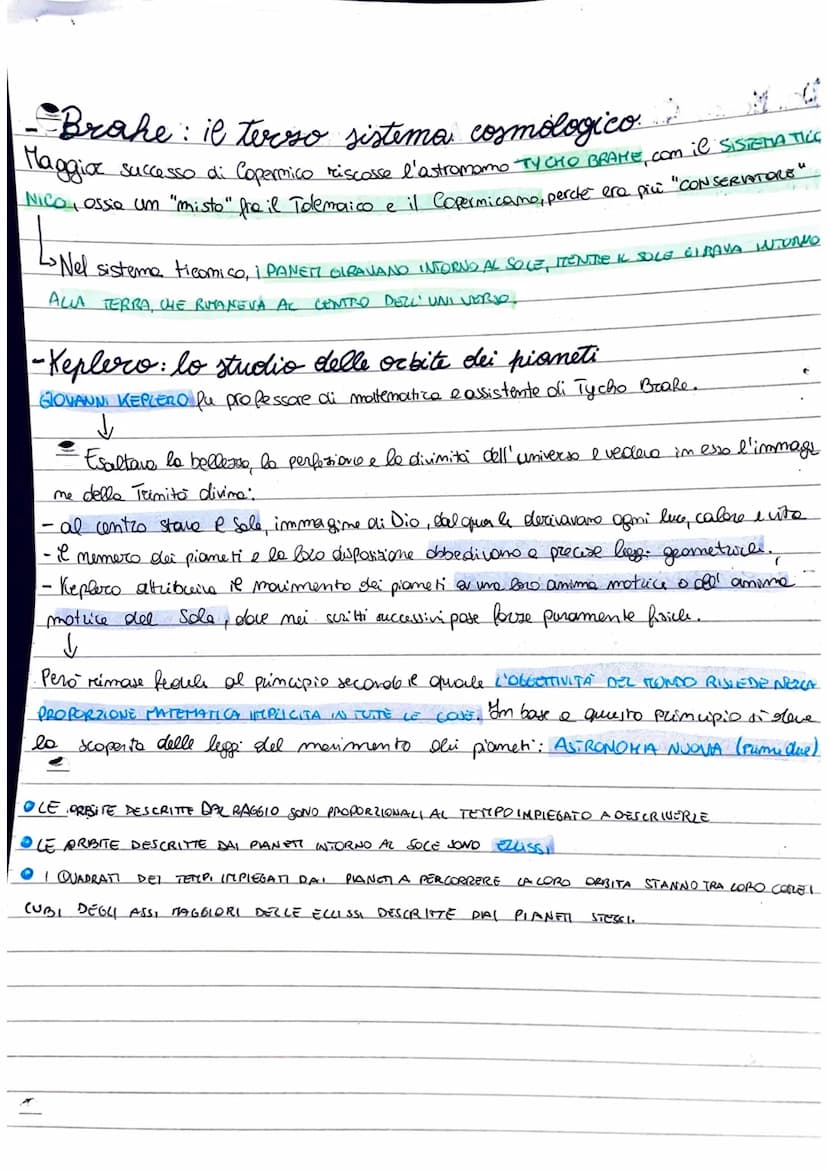 - Brahe: il terzo sistema cosmologico
Maggior successo di Copernico riscosse l'astronomo TYCHO BRAHE, con il SISTEMA TICO
NICO, ossia un "misto" fra il Tolemaico e il Copernicano, perché era più "CONSERVATORE"
Nel sistema ticonico, i PANETI GIRAVANO INTORNO AL SOLE, MENTRE IL SOLE GIRAVA INTORNO
ALLA TERRA, CHE RIMANEVA AL CENTRO DELL'UNIVERSO.
- Keplero: lo studio delle orbite dei pianeti
GIOVANNI KEPLERO fu professore di matematica e assistente di Tycho Brake.
Esaltava la bellezza, la perfezione e la divinità dell'universo e vedeva in esso l'immagi
ne della Trinità divina:
- al centro stava il Sole, immagine di Dio, dal quale derivavano ogni luce, calore e vita
- il numero dei pianeti e la loro disposizione obbedivano a precise leggi geometriche.
- Keplero attribuiva il movimento dei pianeti a una loro anima motrice o all'anima
motrice del Sole, dove nei scritti successivi pose forze puramente fisiche.
Però rimase fedele al principio secondo il quale L'OGGETTIVITÀ DEL MONDO RISIEDE NELLA
PROPORZIONE MATEMATICA IMPLICITA IN TUTE LE COSE. In base a questo principio si deve
la scoperta delle leggi del movimento dei pianeti: ASTRONOMIA NUOVA (prime due)
LE ORBITE DESCRITTE DAL RAGGIO SONO PROPORZIONALI AL TEMPO IMPIEGATO A DESCRIVERLE
LE ORBITE DESCRITTE DAI PIANETI INTORNO AL SOLE SONO ELLISSI
I QUADRATI DEI TEMPI IMPIEGATI DAI PIANETI A PERCORRERE LA LORO ORBITA STANNO TRA LORO COME I
CUBI DEGLI ASSI MAGGIORI DELLE ELLISSI DESCRITTE DAI PIANETI STESSI.